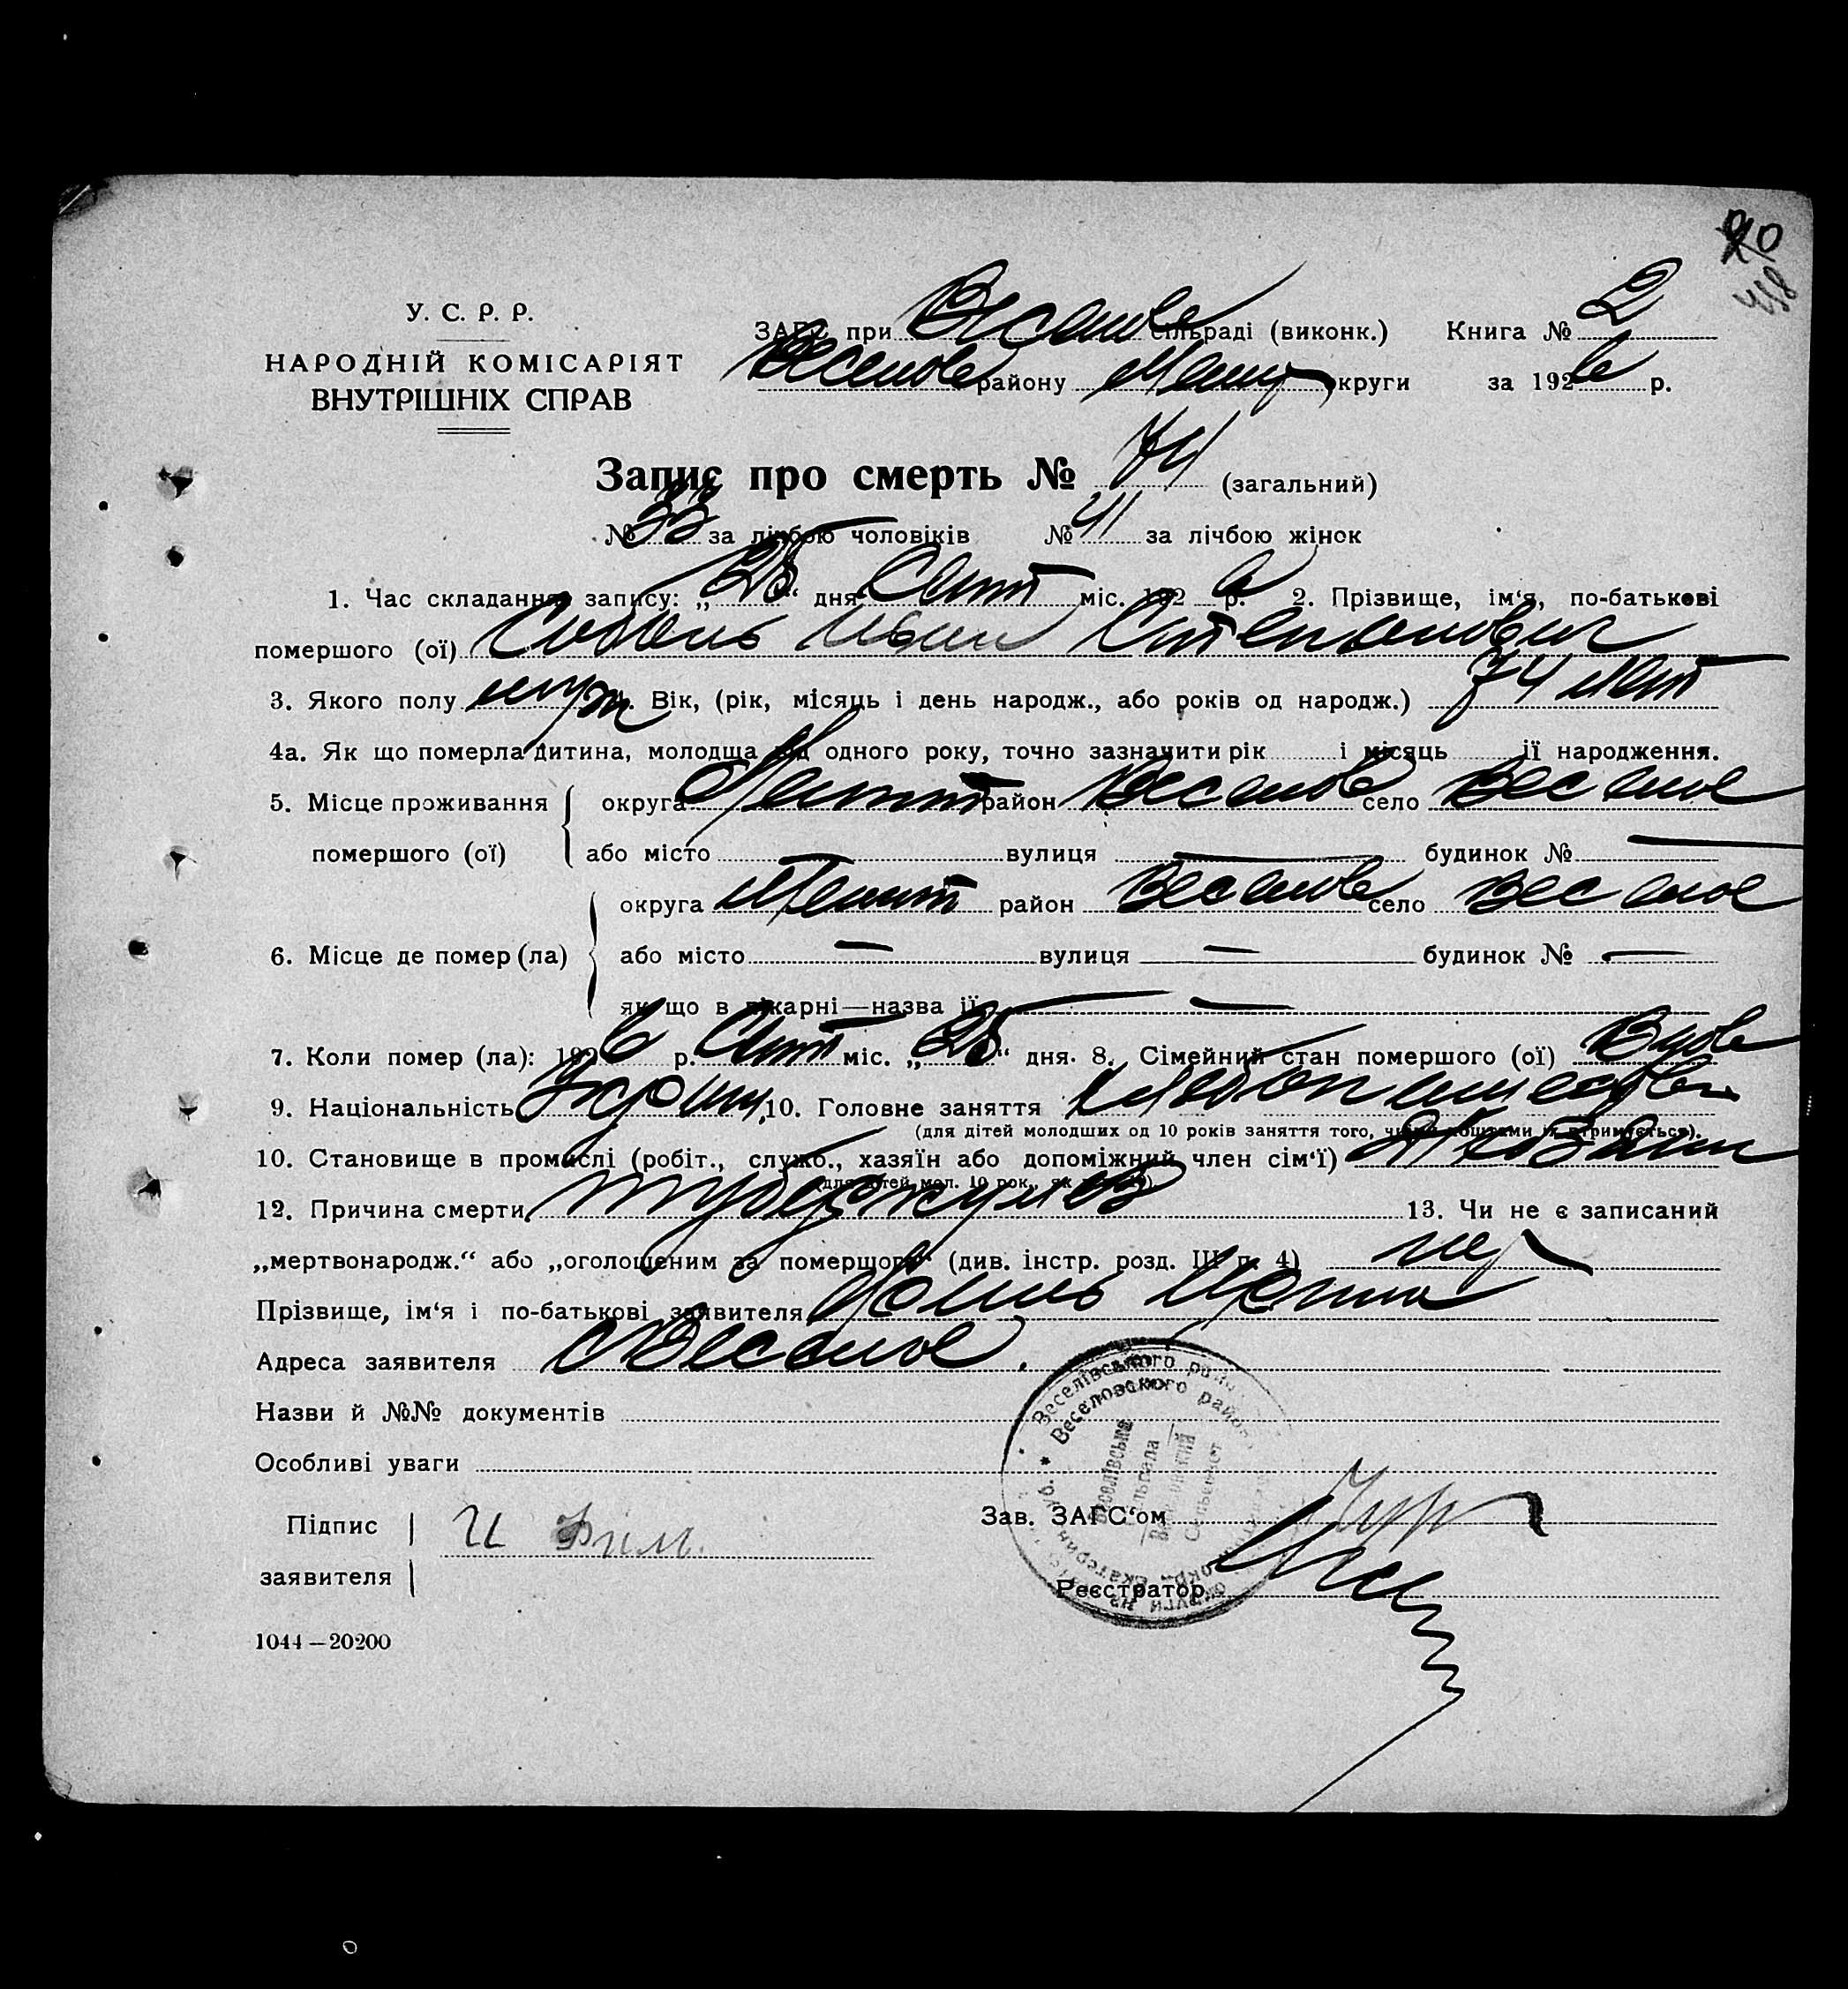 У. С. Р. Р.
НАРОДНІЙ КОМІСАРІЯТ
ВНУТРІШНІХ СПРАВ
ЗАГС при Веселов сільраді (виконк.) Книга № 2
Веселов району округи за 1926 р.
Запис про смерть № 74 (загальний)
№ 33 за лічбою чоловіків № 41 за лічбою жінок
1. Час складання запису: „25“ дня Сент міс. 1926 р. 2. Прізвище, ім‘я, по-батькові
помершого (ої) Иван Степанович
3. Якого полу муж. Вік, (рік, місяць і день народж., або років од народж.) 74 лет
4а. Як що померла дитина, молодща від одного року, точно зазначити рік і місяць її народження.
5. Місце проживання помершого (ої) округа Мелит район Веселов село Веселое
або місто — вулиця — будинок № —
6. Місце де помер (ла) округа Мелит район Веселов село Веселое
або місто — вулиця — будинок № —
як що в лікарні—назва її —
7. Коли помер (ла): 1926 р. Сент міс. „25“ дня. 8. Сімейний стан помершого (ої) Вдов
9. Національність Украин 10. Головне заняття хлебопашество
(для дітей молодших од 10 років заняття того, чиїми коштами їх утримується).
10. Становище в промислі (робіт., служб., хазяїн або допоміжний член сім‘ї)
12. Причина смерти туберкулез 13. Чи не є записаний
„мертвонародж.“ або „оголошеним за помершого“ (див. інстр. розд. III п. 4) нет
Прізвище, ім‘я і по-батькові заявителя
Адреса заявителя с Веселое.
Назви й №№ документів
Особливі уваги
Підпис заявителя И
Зав. ЗАГС‘ом
Реєстратор
1044—20200
Веселівського
Веселовского района
Веселівська
Сільрада